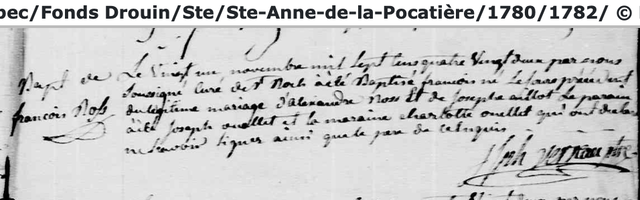 bec/Fonds Drouin/Ste/Ste-Anne-de-la-Pocatière/1780/1782/ ©
Bapt de Le Vingt une novembre mil Sept cens quatre Vingt deux par nous
Soussigné Curé de St Roch a été Baptisé francois né le jour précédent
francois Ross du légitime mariage d'alexandre Ross Et de Josephe aillot Le parain
a été Joseph ouellet et la maraine charlotte ouellet qui ont declaré
ne Scavoir Signer ainsi que le pere de ce Enquis
Jsph verrault ptre